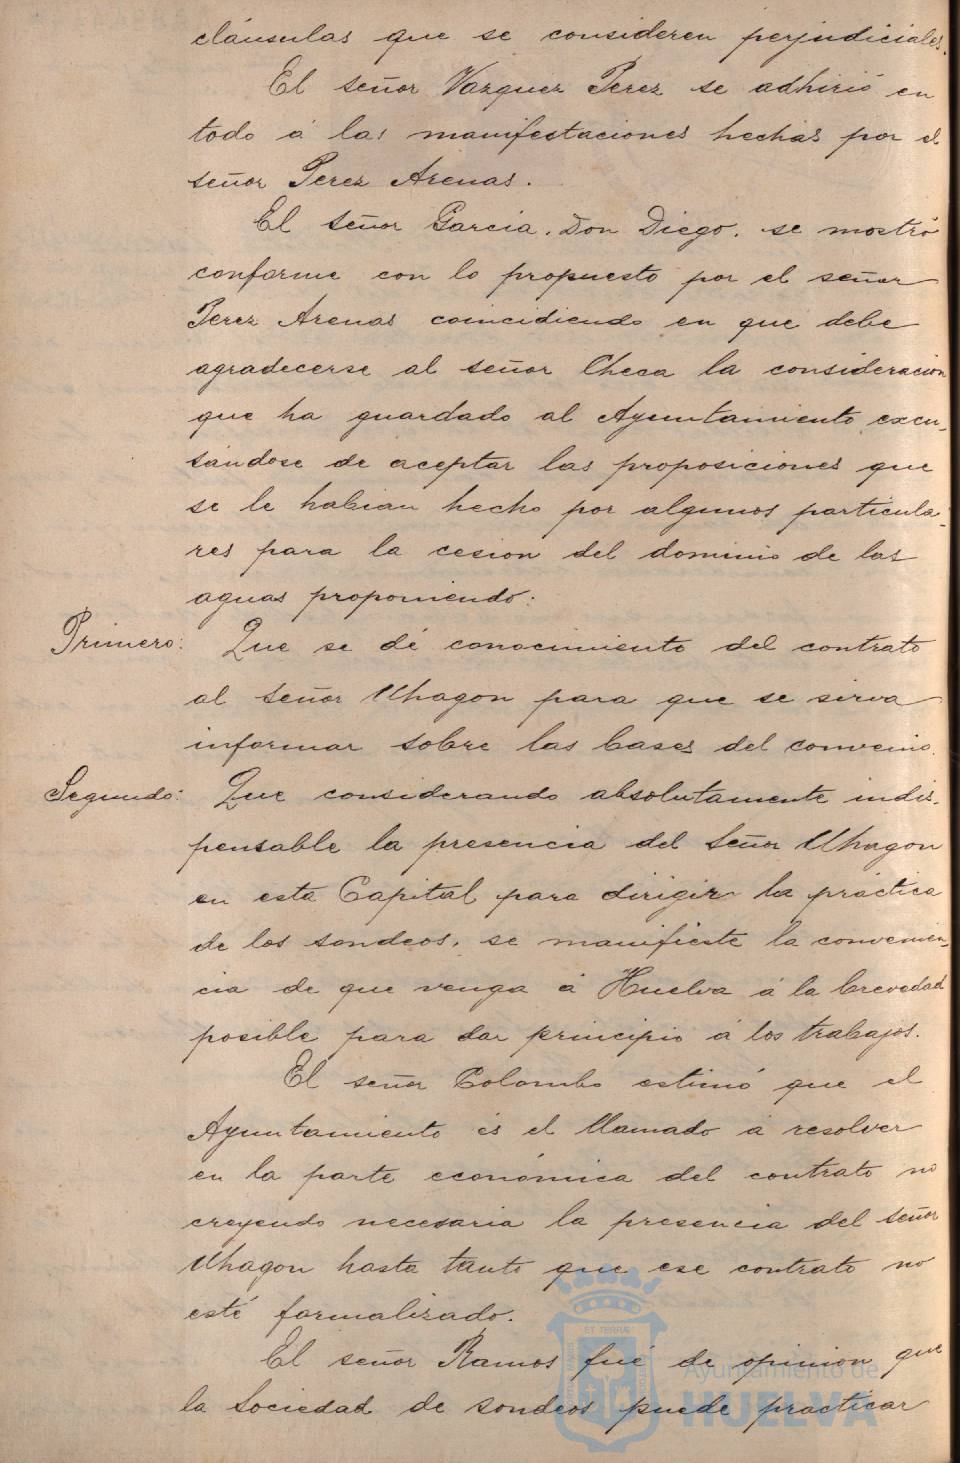 cláusulas que se consideren perjudiciales.
El señor Vazquez Perez se adhirió en
todo á las manifestaciones hechas por el
señor Perez Arenas.
El señor Garcia, Don Diego, se mostró
conforme con lo propuesto por el señor
Perez Arenas coincidiendo en que debe
agradecerse al señor Checa la consideracion
que ha guardado al Ayuntamiento excu-
sandose de aceptar las proposiciones que
se le habian hecho por algunos particula-
res para la cesion del dominio de las
aguas proponiendo:
Primero: Que se dé conocimiento del contrato
al señor Uhagon para que se sirva
informar sobre las bases del convenio.
Segundo: Que considerando absolutamente indis-
pensable la presencia del señor Uhagon
en esta Capital para dirigir la práctica
de los sondeos, se manifieste la convenien-
cia de que venga á Huelva á la brevedad
posible para dar principio á los trabajos.
El señor Colombo estimó que el
Ayuntamiento és el llamado á resolver
en la parte económica del contrato no
creyendo necesaria la presencia del señor
Uhagon hasta tanto que ese contrato no
esté formalizado.
El señor Ramos fué de opinion que
la Sociedad de sondeos puede practicar
Ayuntamiento de
HUELVA